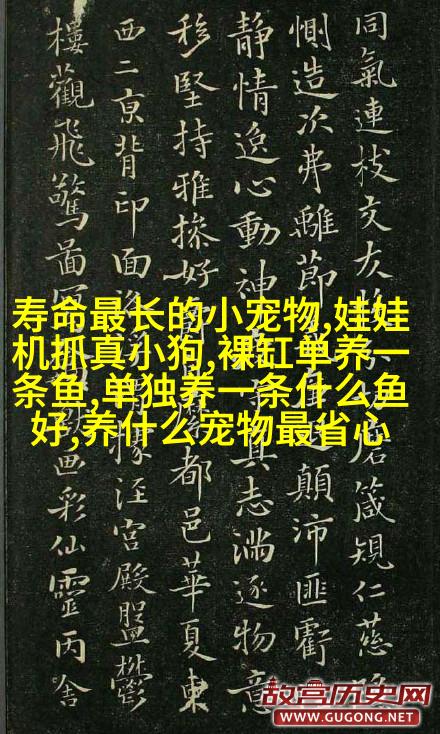 同氣連枝交友箴規仁慈隱
惻造次弗離節退顛沛匪虧
靜情逸心動神真志滿逐物意
移堅持雅操好都邑華夏東
西二京背邙面洛據涇宮殿盤鬱
樓觀飛驚圖寫畫彩仙靈丙舍
寿命最长的小宠物,娃娃
机抓真小狗,裸缸单养一
条鱼,单独养一条什么鱼
好,养什么宠物最省心
故宫历史网
WWW.GUGONG.NET